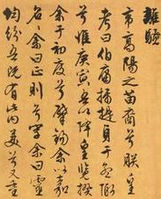 離騷
帝高陽之苗裔兮朕皇
考曰伯庸攝提貞于孟陬
兮惟庚寅吾以降皇覽揆
余于初度兮肇錫余以嘉
名名余曰正則兮字余曰靈
均紛吾既有此內美兮又重